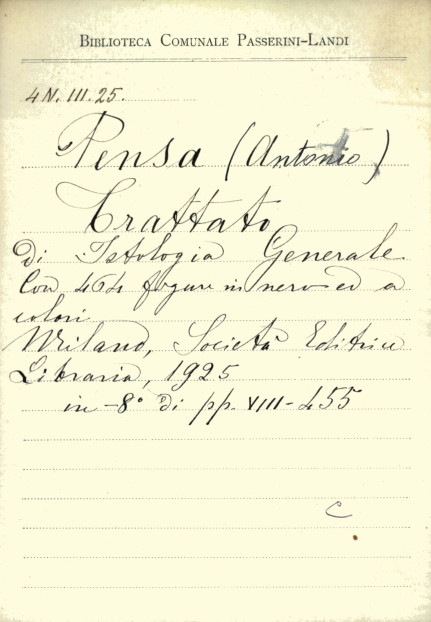 BIBLIOTECA COMUNALE PASSERINI-LANDI
4 N. III. 25.
Pensa (Antonio)
Trattato
di Istologia Generale.
Con 464 figure in nero ed a
colori
Milano, Società Editrice
Libraria, 1925
in-8° di pp. VIII-455
C